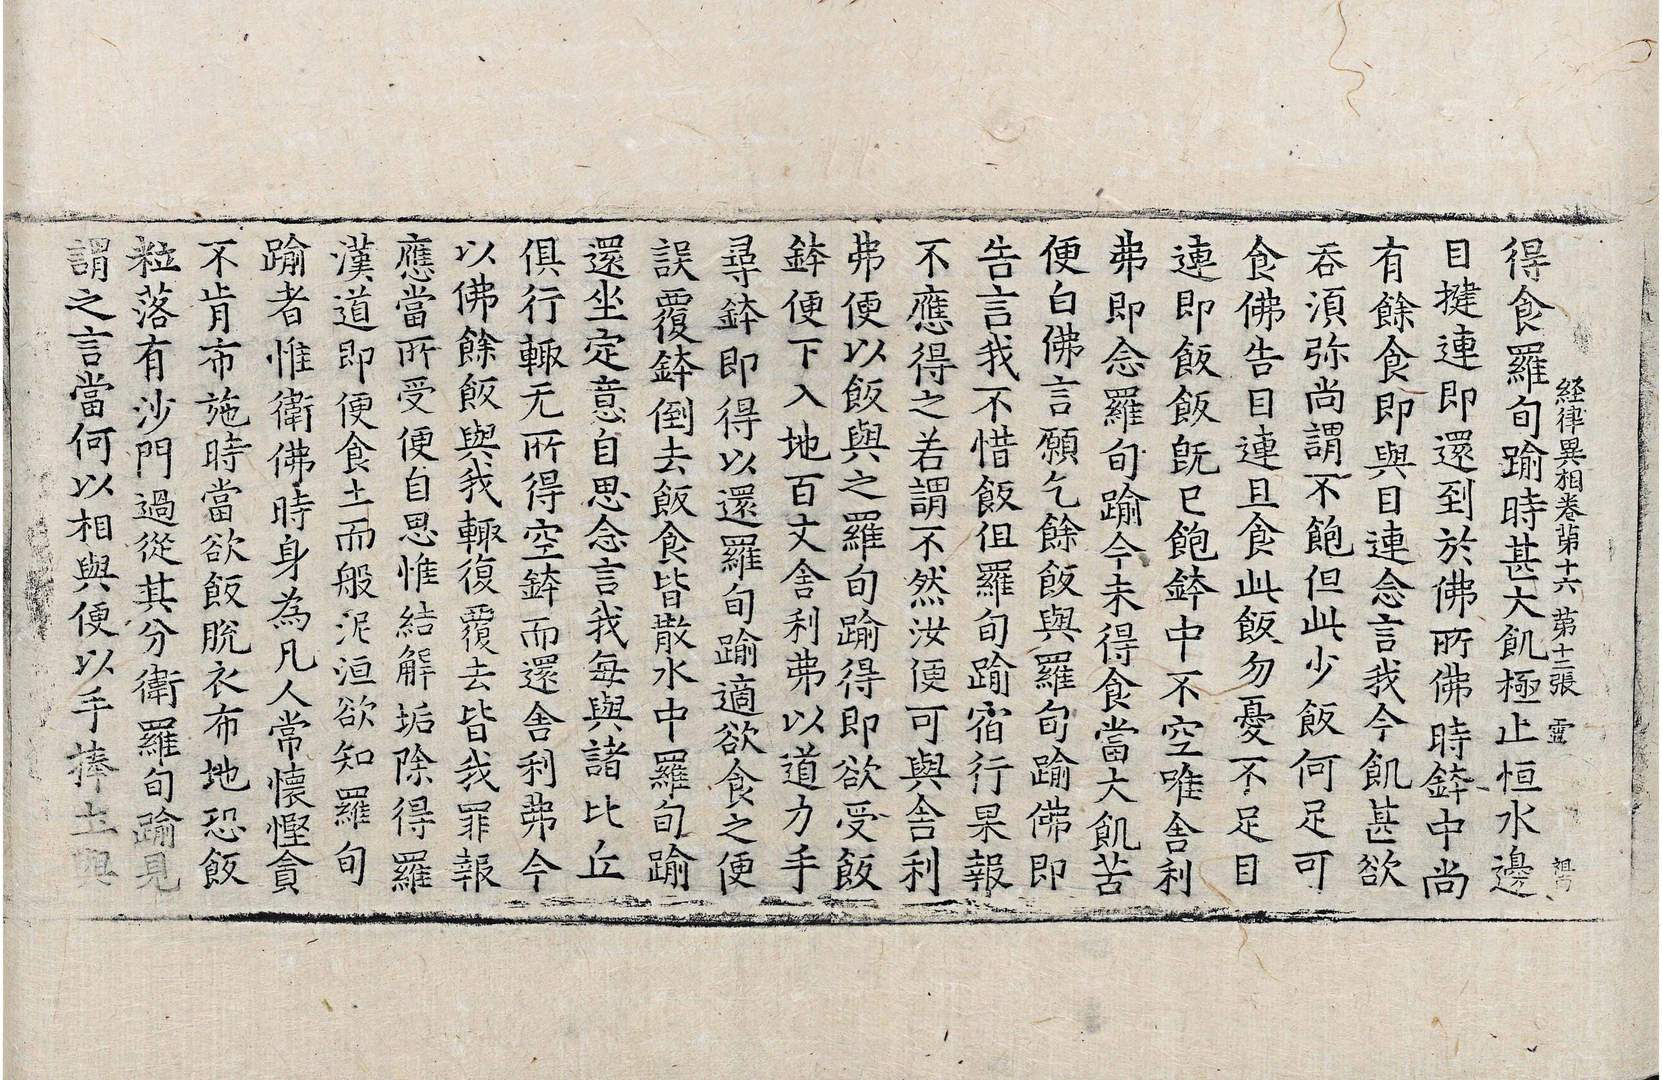 経律異相卷苐十六 第十二張 靈
得食羅旬踰時甚大飢極止恒水邊
目揵連即還到於佛所佛時鉢中尚
有餘食即與目連念言我今飢甚欲
吞須弥尚謂不飽但此少飯何足可
食佛告目連且食此飯勿憂不足目
連即飯飯旣已飽鉢中不空唯舍利
弗即念羅旬踰今未得食當大飢苦
便白佛言願乞餘飯與羅旬踰佛即
告言我不惜飯但羅旬踰宿行果報
不應得之若謂不然汝便可與舍利
弗便以飯與之羅旬踰得即欲受飯
鉢便下入地百丈舍利弗以道力手
尋鉢即得以還羅旬踰適欲食之便
誤覆鉢倒去飯食皆散水中羅旬踰
還坐定意自思念言我每與諸比丘
俱行輙无所得空鉢而還舍利弗今
以佛餘飯與我輙復覆去皆我罪報
應當所受便自思惟結解垢除得羅
漢道即便食土而般泥洹欲知羅旬
踰者惟衛佛時身為凡人常懷慳貪
不肯布施時當欲飯脫衣布地恐飯
粒落有沙門過從其分衛羅旬踰見
謂之言當何以相與便以手捧土與